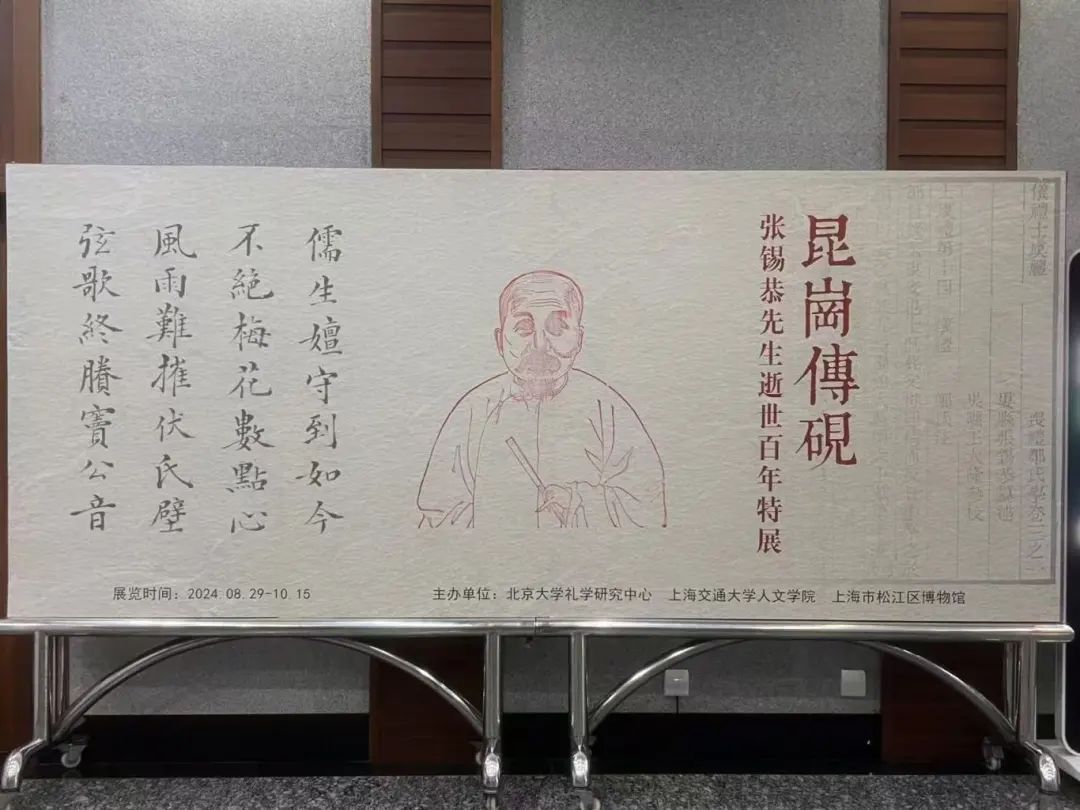 儀禮士虞禮
喪禮鄭氏學卷
昆崗傳硯
张锡恭先生逝世百年特展
儒生嬗守到如今
不絕梅花數點心
風雨難摧伏氏壁
弦歌終賸竇公音
展览时间：2024.08.29-10.15
主办单位：北京大学礼学研究中心 上海交通大学人文学院 上海市松江区博物馆